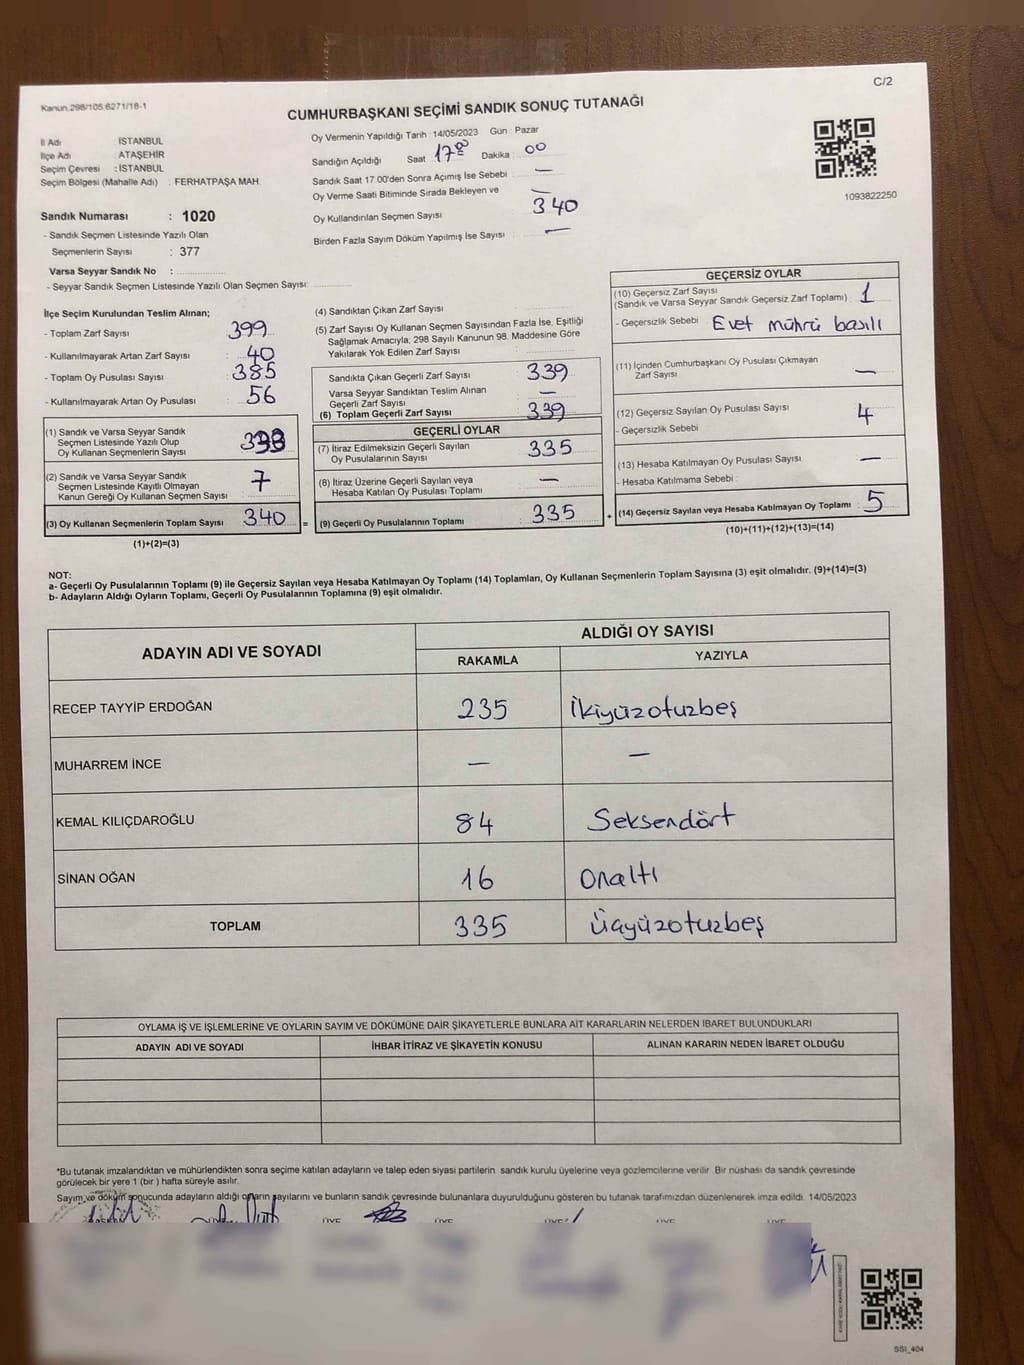 C/2
Kanun.298/105,6271/18-1
CUMHURBAŞKANI SEÇİMİ SANDIK SONUÇ TUTANAĞI
İl Adı : İSTANBUL
İlçe Adı : ATAŞEHİR
Seçim Çevresi : İSTANBUL
Seçim Bölgesi (Mahalle Adı) : FERHATPAŞA MAH.
Oy Vermenin Yapıldığı Tarih : 14/05/2023 Gün : Pazar
Sandığın Açıldığı Saat 17 Dakika : 00
Sandık Saat 17:00'den Sonra Açımış İse Sebebi : —
Oy Verme Saati Bitiminde Sırada Bekleyen ve —
Oy Kullandırılan Seçmen Sayısı 340
Birden Fazla Sayım Döküm Yapılmış İse Sayısı : —
1093822250
Sandık Numarası : 1020
- Sandık Seçmen Listesinde Yazılı Olan
Seçmenlerin Sayısı : 377
Varsa Seyyar Sandık No :
- Seyyar Sandık Seçmen Listesinde Yazılı Olan Seçmen Sayısı:
İlçe Seçim Kurulundan Teslim Alınan;
- Toplam Zarf Sayısı : 399
- Kullanılmayarak Artan Zarf Sayısı : 40
- Toplam Oy Pusulası Sayısı : 385
- Kullanılmayarak Artan Oy Pusulası : 56
(1) Sandık ve Varsa Seyyar Sandık
Seçmen Listesinde Yazılı Olup
Oy Kullanan Seçmenlerin Sayısı :
(2) Sandık ve Varsa Seyyar Sandık
Seçmen Listesinde Kayıtlı Olmayan
Kanun Gereği Oy Kullanan Seçmen Sayısı : 7
(3) Oy Kullanan Seçmenlerin Toplam Sayısı : 340
(1)+(2)=(3)
=
(4) Sandıktan Çıkan Zarf Sayısı
(5) Zarf Sayısı Oy Kullanan Seçmen Sayısından Fazla İse, Eşitliği
Sağlamak Amacıyla; 298 Sayılı Kanunun 98. Maddesine Göre
Yakılarak Yok Edilen Zarf Sayısı :
Sandıkta Çıkan Geçerli Zarf Sayısı : 339
Varsa Seyyar Sandıktan Teslim Alınan
Geçerli Zarf Sayısı : —
(6) Toplam Geçerli Zarf Sayısı : 339
GEÇERLİ OYLAR
(7) İtiraz Edilmeksizin Geçerli Sayılan
Oy Pusulalarının Sayısı : 335
(8) İtiraz Üzerine Geçerli Sayılan veya
Hesaba Katılan Oy Pusulası Toplamı : —
(9) Geçerli Oy Pusulalarının Toplamı : 335
+
GEÇERSİZ OYLAR
(10) Geçersiz Zarf Sayısı
(Sandık ve Varsa Seyyar Sandık Geçersiz Zarf Toplamı) : 1
- Geçersizlik Sebebi : Evet mührü basılı
(11) İçinden Cumhurbaşkanı Oy Pusulası Çıkmayan
Zarf Sayısı : —
(12) Geçersiz Sayılan Oy Pusulası Sayısı : 4
- Geçersizlik Sebebi :
(13) Hesaba Katılmayan Oy Pusulası Sayısı : —
- Hesaba Katılmama Sebebi :
(14) Geçersiz Sayılan veya Hesaba Katılmayan Oy Toplamı : 5
(10)+(11)+(12)+(13)=(14)
NOT:
a- Geçerli Oy Pusulalarının Toplamı (9) ile Geçersiz Sayılan veya Hesaba Katılmayan Oy Toplamı (14) Toplamları, Oy Kullanan Seçmenlerin Toplam Sayısına (3) eşit olmalıdır. (9)+(14)=(3)
b- Adayların Aldığı Oyların Toplamı, Geçerli Oy Pusulalarının Toplamına (9) eşit olmalıdır.
ADAYIN ADI VE SOYADI
ALDIĞI OY SAYISI
RAKAMLA YAZIYLA
RECEP TAYYİP ERDOĞAN 235 İkiyüzotuzbeş
MUHARREM İNCE — —
KEMAL KILIÇDAROĞLU 84 Seksendört
SİNAN OĞAN 16 Onaltı
TOPLAM 335 Üçyüzotuzbeş
OYLAMA İŞ VE İŞLEMLERİNE VE OYLARIN SAYIM VE DÖKÜMÜNE DAİR ŞİKAYETLERLE BUNLARA AİT KARARLARIN NELERDEN İBARET BULUNDUKLARI
ADAYIN ADI VE SOYADI İHBAR İTİRAZ VE ŞİKAYETİN KONUSU ALINAN KARARIN NEDEN İBARET OLDUĞU
*Bu tutanak imzalandıktan ve mühürlendikten sonra seçime katılan adayların ve talep eden siyasi partilerin sandık kurulu üyelerine veya gözlemcilerine verilir. Bir nüshası da sandık çevresinde
görülecek bir yere 1 (bir ) hafta süreyle asılır.
Sayım ve döküm sonucunda adayların aldığı oyların sayılarını ve bunların sandık çevresinde bulunanlara duyurulduğunu gösteren bu tutanak tarafımızdan düzenlenerek imza edildi. 14/05/2023
ÜYE ÜYE ÜYE ÜYE ÜYE
SSI_404